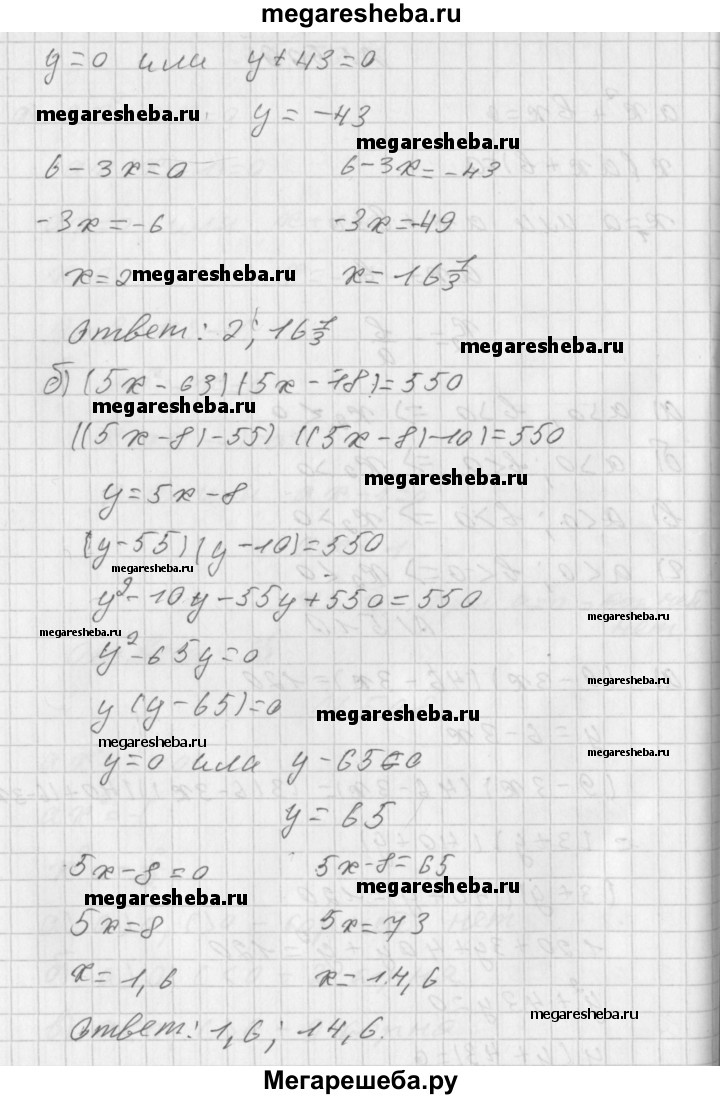 megaresheba.ru
y=0 или y+43=0
megaresheba.ru y = -43
megaresheba.ru
6-3x=0 6-3x=-43
-3x=-6 -3x=-49
x=2 megaresheba.ru x=16 1/3
Ответ: 2; 16 1/3
megaresheba.ru
б) (5x-63)(5x-18)=550
megaresheba.ru
((5x-8)-55) ((5x-8)-10)=550
megaresheba.ru
y=5x-8
(y-55)(y-10)=550
megaresheba.ru
y²-10y-55y+550=550
megaresheba.ru
megaresheba.ru
y²-65y=0
megaresheba.ru
y(y-65)=0
megaresheba.ru
megaresheba.ru
megaresheba.ru
y=0 или y-65=0
y=65
5x-8=0 5x-8=65
megaresheba.ru
megaresheba.ru
5x=8 5x=73
x=1,6 x=14,6
megaresheba.ru
Ответ: 1,6; 14,6.
Мегарешеба.ру